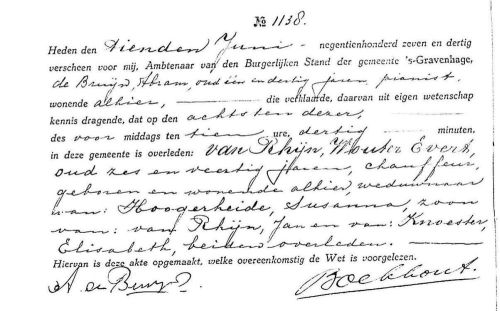 № 1138.
Heden den tienden Juni - negentienhonderd zeven en dertig
verscheen voor mij, Ambtenaar van den Burgerlijken Stand der gemeente 's-Gravenhage,
de Bruijn, Abram, oud één en dertig jaren, pianist,
wonende alhier, — die verklaarde, daarvan uit eigen wetenschap
kennis dragende, dat op den achtsten dezer, —
des voor middags ten tien ure, dertig — minuten,
in deze gemeente is overleden: van Rhijn, Wouter Evert,
oud zes en veertig jaren, chauffeur,
geboren en wonende alhier, weduwnaar
van: Hoogerheide, Susanna, zoon
van: van Rhijn, Jan en van: Knoester,
Elisabeth, beiden overleden. —
Hiervan is deze akte opgemaakt, welke overeenkomstig de Wet is voorgelezen.
A de Bruijn. Boekhout.